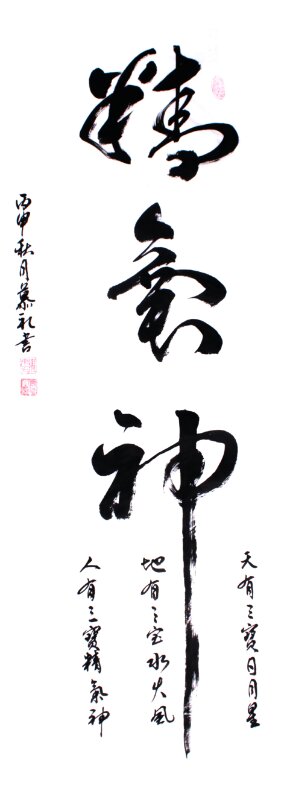 精氣神
天有三寶日月星
地有三宝水火風
人有三寶精氣神
丙申秋月慕礼书